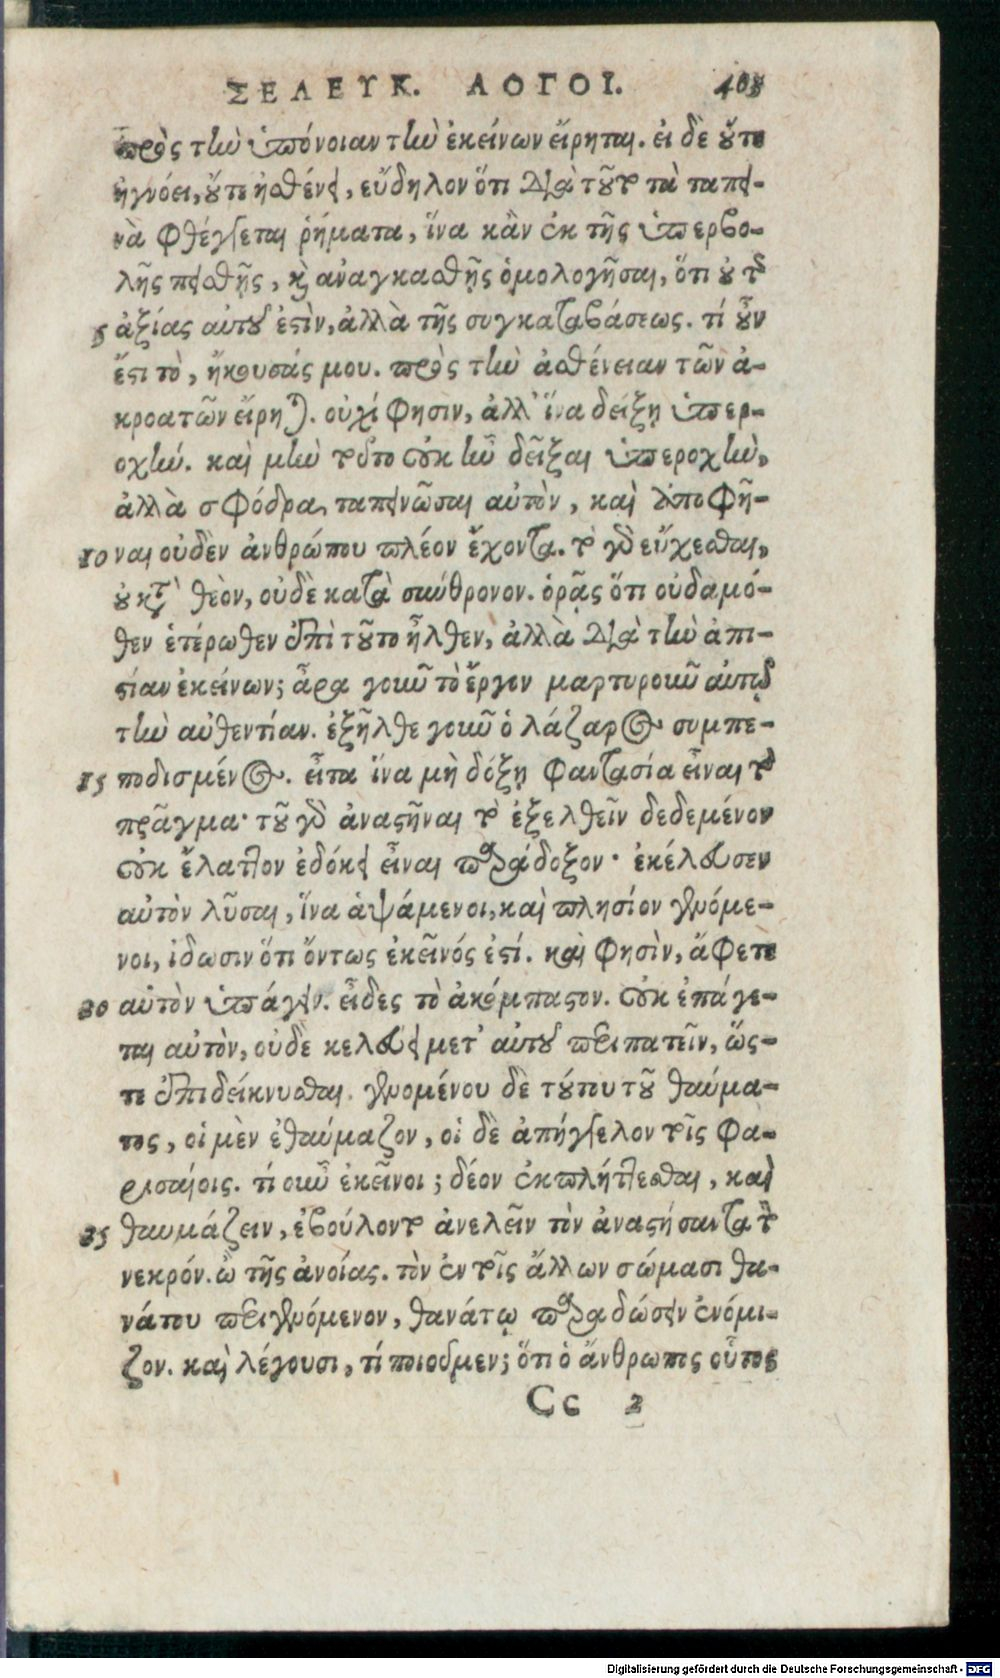 ΣΕΛΕΥΚ. ΛΟΓΟΙ. 403
πρὸς τὴν ὑπόνοιαν τὴν ἐκείνων εἴρηται. εἰ δὲ οὔτε
ἠγνόει, οὔτε ἠσθένει, εὔδηλον ὅτι διὰ τοῦτο τὰ ταπει-
νὰ φθέγγεται ῥήματα, ἵνα κἂν ἐκ τῆς ὑπερβο-
λῆς πεισθῇς, καὶ ἀναγκασθῇς ὁμολογῆσαι, ὅτι οὐ τῆς
5 ἀξίας αὐτοῦ ἐστὶν, ἀλλὰ τῆς συγκαταβάσεως. τί οὖν
ἔστι τὸ, ἤκουσάς μου. πρὸς τὴν ἀσθένειαν τῶν ἀ-
κροατῶν εἴρηται. οὐχί φησιν, ἀλλ' ἵνα δείξῃ ὑπερ-
οχήν. καὶ μὴν τοῦτο οὐκ ἦν δεῖξαι ὑπεροχὴν,
ἀλλὰ σφόδρα ταπεινῶσαι αὐτὸν, καὶ ἀποφῆ-
10 ναι οὐδὲν ἀνθρώπου πλέον ἔχοντα. τὸ γὰρ εὔχεσθαι,
οὐ κατὰ θεὸν, οὐδὲ κατὰ σύνθρονον. ὁρᾷς ὅτι οὐδαμό-
θεν ἑτέρωθεν ἐπὶ τοῦτο ἦλθεν, ἀλλὰ διὰ τὴν ἀπι-
στίαν ἐκείνων; ἆρα γοῦν τὸ ἔργον μαρτυροῦν αὐτῷ
τὴν αὐθεντίαν. ἐξῆλθε γοῦν ὁ λάζαρος συμπε-
15 ποδισμένος. εἶτα ἵνα μὴ δόξῃ φαντασία εἶναι τὸ
πρᾶγμα· τοῦ γὰρ ἀναστῆναι τὸ ἐξελθεῖν δεδεμένον
οὐκ ἔλαττον ἐδόκει εἶναι παράδοξον· ἐκέλευσεν
αὐτὸν λῦσαι, ἵνα ἁψάμενοι, καὶ πλησίον γενόμε-
νοι, ἴδωσιν ὅτι ὄντως ἐκεῖνός ἐστί. καὶ φησὶν, ἄφετε
20 αὐτὸν ὑπάγειν. εἶδες τὸ ἀκόμπαστον. οὐκ ἐπάγε-
ται αὐτὸν, οὐδὲ κελεύει μετ' αὐτοῦ περιπατεῖν, ὥς-
τε ἐπιδείκνυσθαι. γενομένου δὲ τούτου τοῦ θαύμα-
τος, οἱ μὲν ἐθαύμαζον, οἱ δὲ ἀπήγγελον τοῖς φα-
ρισαίοις. τί οὖν ἐκεῖνοι; δέον ἐκπλήττεσθαι, καὶ
25 θαυμάζειν, ἐβούλοντο ἀνελεῖν τὸν ἀναστήσαντα τὸν
νεκρόν. ὢ τῆς ἀνοίας. τὸν ἐν τοῖς ἄλλων σώμασι θα-
νάτου περιγενόμενον, θανάτῳ παραδώσειν ἐνόμι-
ζον. καὶ λέγουσι, τί ποιοῦμεν; ὅτι ὁ ἄνθρωπος οὗτος
Cc 2
Digitalisierung gefördert durch die Deutsche Forschungsgemeinschaft - DFG